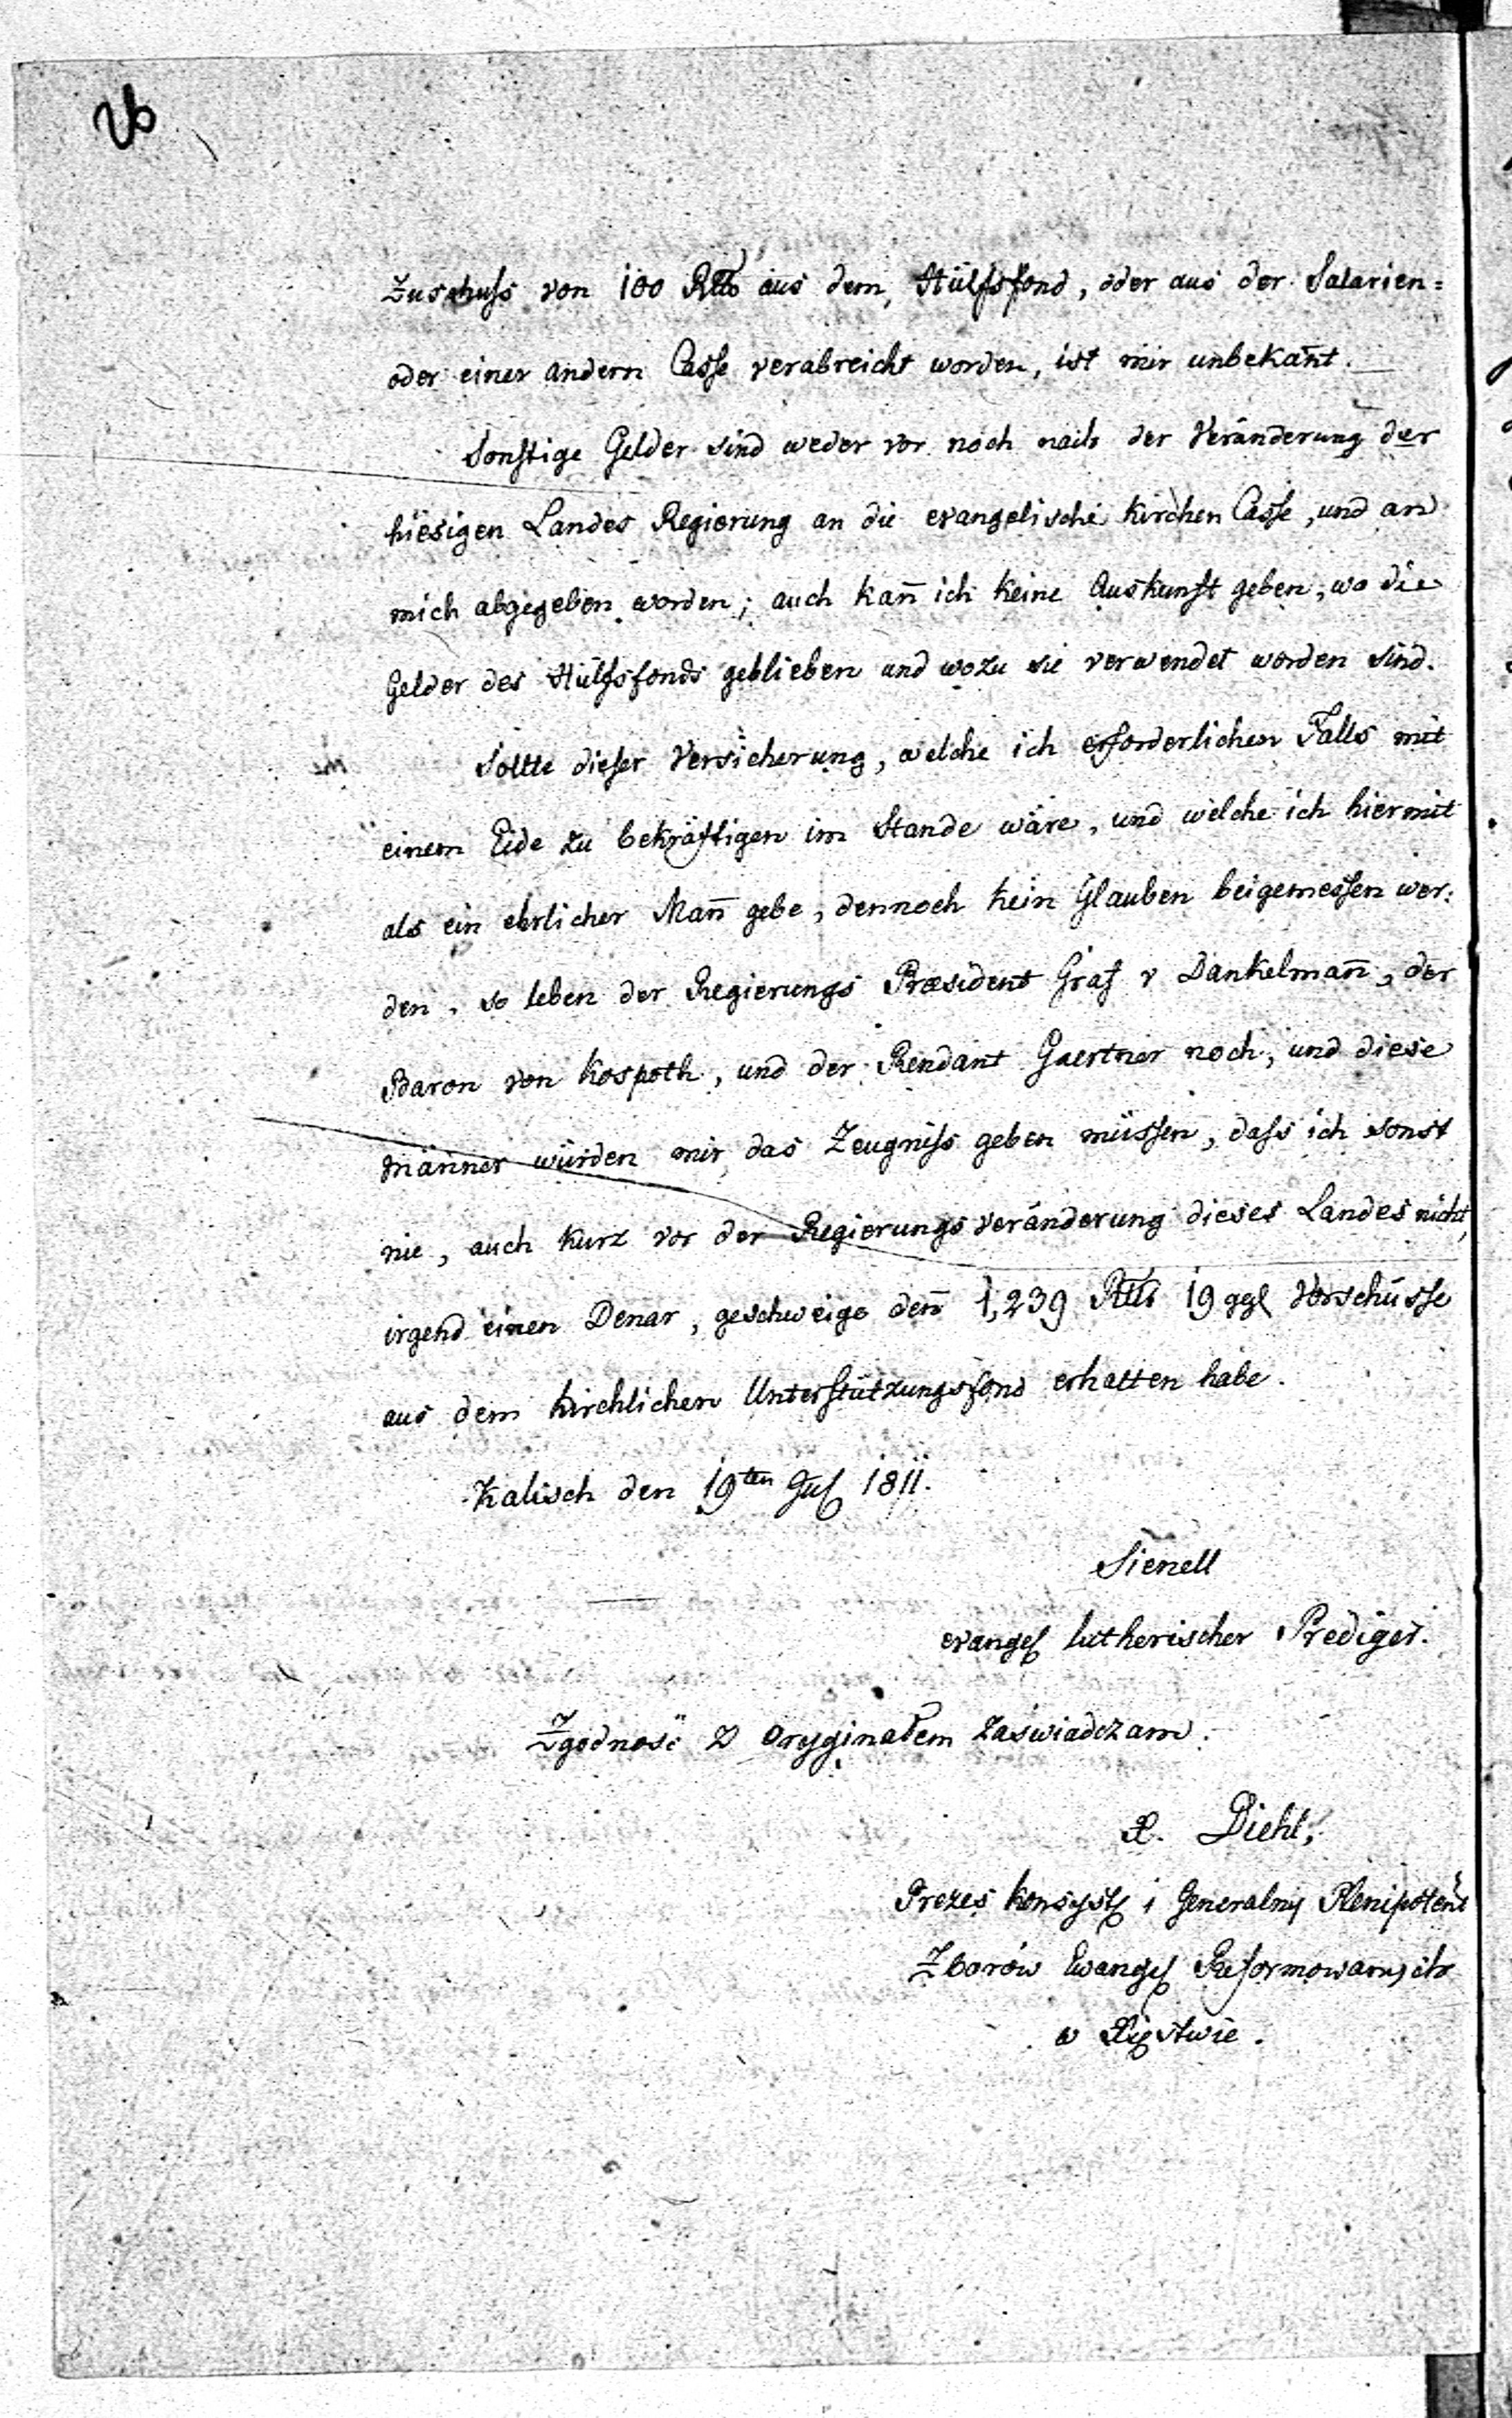 26
Zuschuſs von 100 Rtlr aus dem Hülfsfond, oder aus der Salarien=
oder einer andern Caſſe verabreicht worden, ist mir unbekan̄t.
Sonſtige Gelder sind weder vor noch nach der Veränderung der
hiesigen Landes Regierung an die evangelische Kirchen Caſſe, und an
mich abgegeben worden; auch kan̄ ich keine Auskunft geben, wo die
Gelder des Hülfsfonds geblieben und wozu sie verwendet worden sind.
Sollte dieſer Versicherung, welche ich erforderlichen Falls mit
einem Eide zu bekräftigen im Stande wäre, und welche ich hiermit
als ein ehrlicher Man̄ gebe, dennoch kein Glauben beigemeſsen wer=
den, so leben der Regierungs Præsident Graf v Dankelman̄, der
Baron von Kospoth, und der Rendant Gaertner noch, und diese
Männer würden mir das Zeugniſs geben müſsen, daſs ich sonst
nie, auch kurz vor der Regierungs veränderung dieses Landes nicht,
irgend einen Denar, geschweige den̄ 1,239 Rtlr 19 ggl Vorschüſse
aus dem kirchlichen Unterſtützungsfond erhalten habe.
Kalisch den 19ten Jul 1811.
Sienell
evangel lutherischer Prediger.
Zgodność z oryginałem zaświadczam.
X. Diehl,
Prezes Konsyst i Generalny Plenipotent
Zborów Ewangel Reformowanych
w Xięstwie.